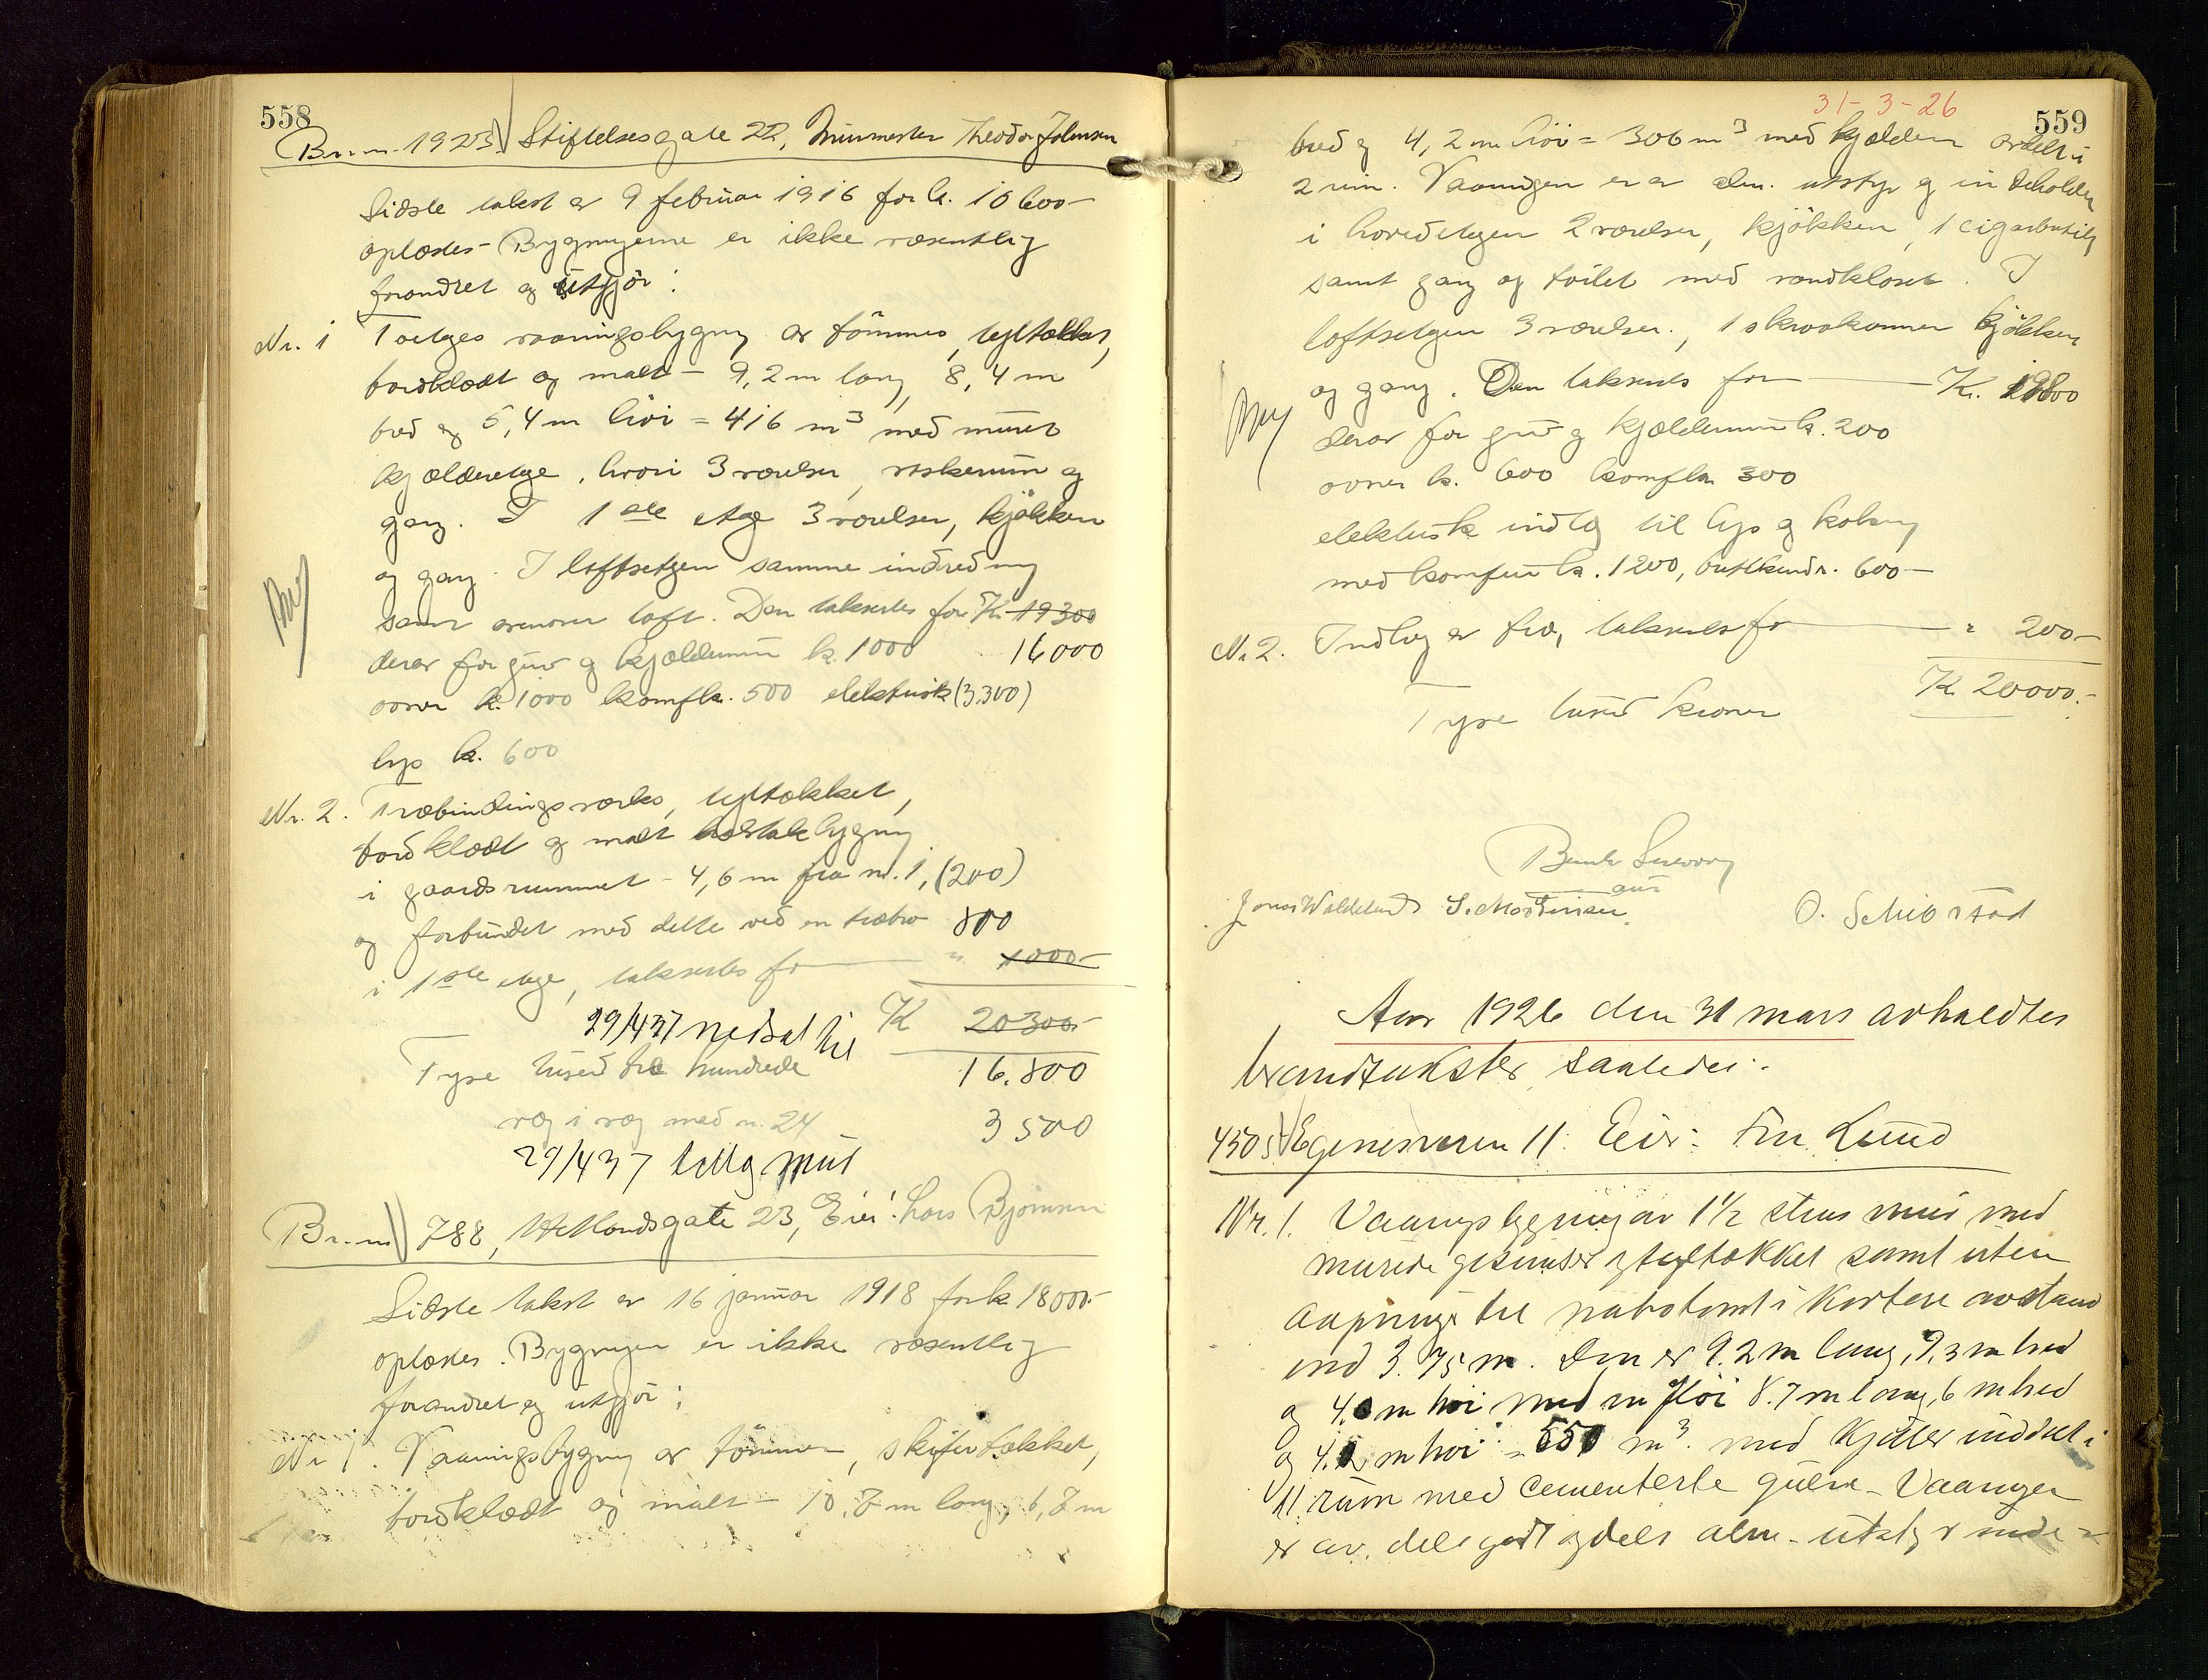 558
Br. nr. 1923. Stiftelsesgate 22, Murmester Theodor Johnsen
Sidste takst av 9 februar 1916 for kr. 10600-
oplæstes- Bygningerne er ikke væsentlig
forandret og utgjör:
Nr. 1 Toetages vaaningsbygning av tömmer, tegltækket,
bordklædt og malt - 9,2 m lang, 8,4 m
bred og 5,4 m höi = 416 m3 med muret
kjælderetage, hvori 3 værelser, vaskerum og
gang. I 1ste etage 3 værelser, kjökken
og gang. I loftsetagen samme indredning
samt ovenover loft. Den takseres for Kr. 19300
derav for grav og kjældermur kr. 1000 16000
ovner kr. 1000 komfkr. 500 elektrisk (3.300)
lys kr. 600
Nr. 2. Træbindingsverks, tegltækket,
bordklædt og malt bygning
i gaardsrummet - 4,6 m fra nr. 1, (200)
og forbundet med dette ved en træbro 800
i 1ste etage, takseres for " 1000-
29/4 37 nedsat til K 20300-
Tyve tusen tre hundrede 16.800
væg i væg med nr. 24 3500
29/4 37 tillæg mur
Br. nr. 788, Hetlandsgate 23, Eier: Lars Bjørnsen
Sidste takst av 16 januar 1918 for kr 18000.-
oplæstes. Bygningen er ikke væsentlig
forandret og utgjör:
Nr 1. Vaaningsbygning av tömmer, skifertækket,
bordklædt og malt - 10,7 m lang, 6,7 m
31-3-26
559
bred og 4,2 m höi = 306 m3 med kjælder avdelt i
2 rum. Vaaningen er av alm. utstyr og indeholder
i hovedetagen 2 værelser, kjökken, 1 cigarbutik
samt gang og toilet med vandkloset. I
loftsetagen 3 værelser, 1 skraakammer kjökken
og gang. Den takseres for Kr. 19800
derav for grav og kjældermur kr. 200
ovner kr. 600 komfkr. 300
elektrisk indlæg til lys og kokning
med komfur kr. 1200, butikindr. 600-
Nr 2. Indhegn av træ, takseres for " 200-
Kr. 20000.-
Tyve tusen kroner
Jonas Waldeland S. Mortensen O. Schibstad
Aar 1926 den 31 mars avholdtes
brandtakster saaledes:
450 Egenesveien 11. Eier: Finn Lund
Nr. 1. Vaaningsbygning av 1½ stens mur med
murede gesimser og tegltækket samt uten
aapninger til nabotomt i kortere avstand
end 3.75 m. Den er 9.2 m lang, 9,3 m bred
og 4.0 m höi med en flöi 8.7 m lang, 6 m bred
og 4. m höi = 550 m3. med kjeller inddelt i
11 rum med cementerte gulve - Vaaningen
er av dels godt og dels alm. utstyr inde-